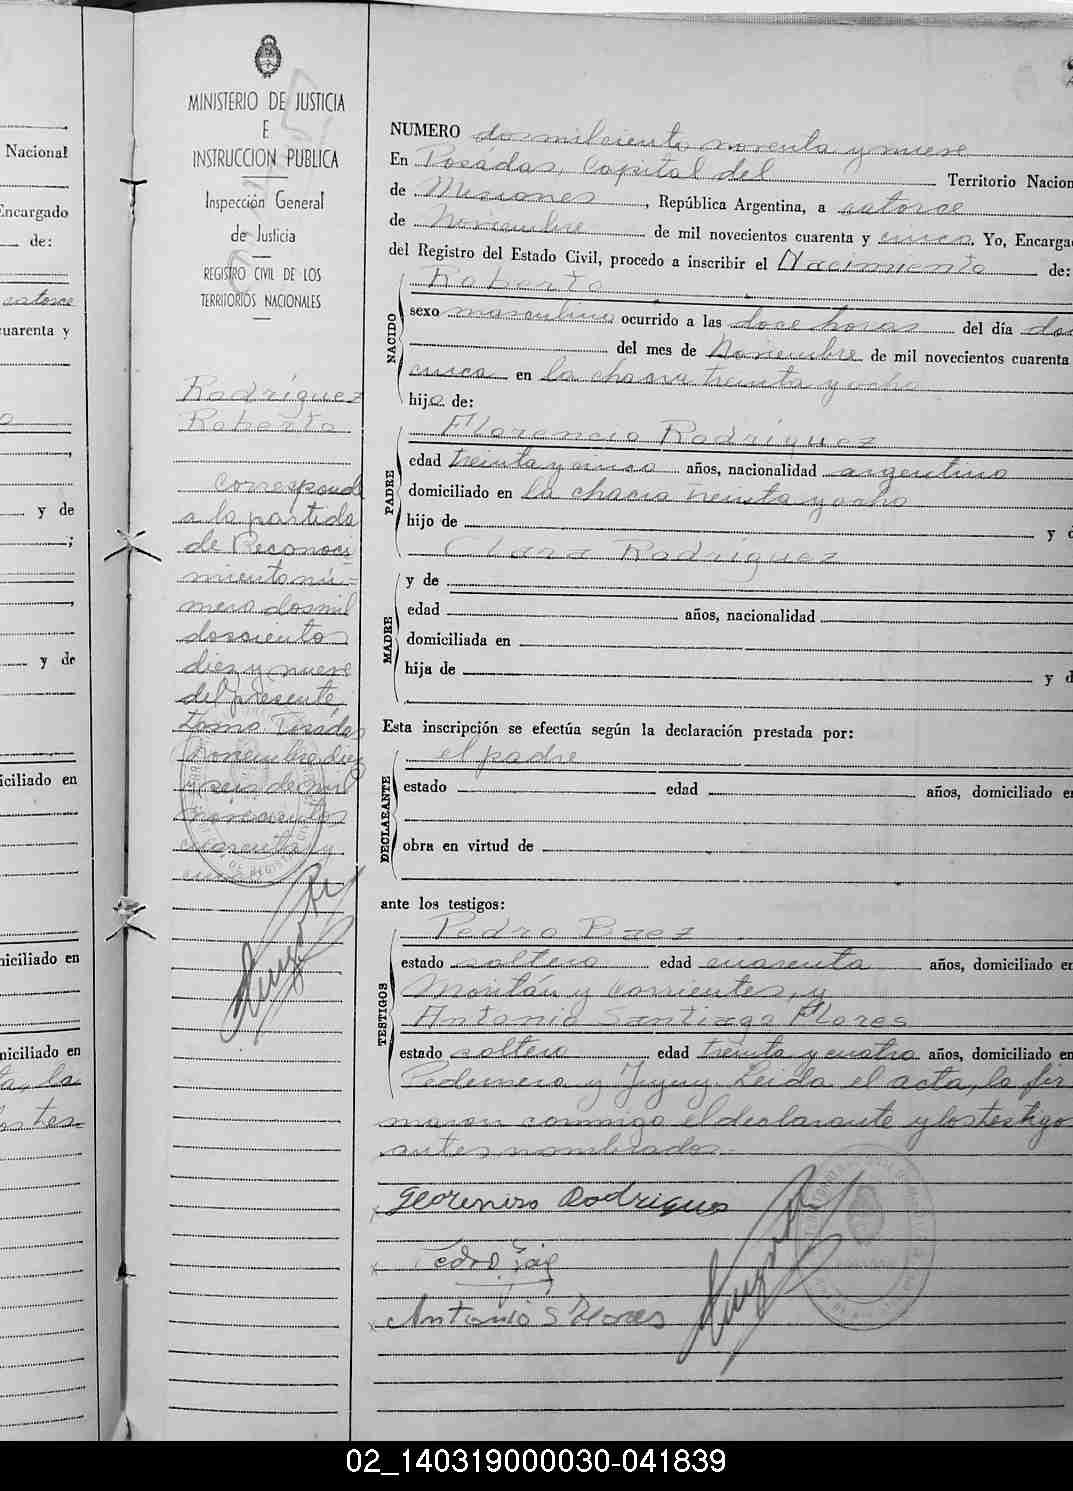 MINISTERIO DE JUSTICIA
E
INSTRUCCION PUBLICA
Inspección General
de Justicia
REGISTRO CIVIL DE LOS
TERRITORIOS NACIONALES
Rodríguez
Roberto
corresponde
a la partida
de Reconoci
miento nú=
mero dos mil
doscientos
diez y nueve
del presente
tomo Posadas
Noviembre diez
y seis de mil
novecientos
cuarenta y
cinco
NUMERO dos mil ciento noventa y nueve
En Posadas, Capital del Territorio Nacion
de Misiones, República Argentina, a catorce
de Noviembre de mil novecientos cuarenta y cinco. Yo, Encarga
del Registro del Estado Civil, procedo a inscribir el Nacimiento de:
NACIDO
Roberto
sexo masculino ocurrido a las doce horas del día dos
del mes de Noviembre de mil novecientos cuarenta
cinco en la chacra treinta y ocho
hijo de:
PADRE
Florencio Rodríguez
edad treinta y cinco años, nacionalidad argentino
domiciliado en la chacra treinta y ocho
hijo de y d
Clara Rodríguez
MADRE
y de
edad años, nacionalidad
domiciliada en
hija de y d
Esta inscripción se efectúa según la declaración prestada por:
DECLARANTE
el padre
estado edad años, domiciliado en
obra en virtud de
ante los testigos:
TESTIGOS
Pedro Baez
estado soltero edad cuarenta años, domiciliado en
y Corrientes, y
Antonio Santiago Flores
estado soltero edad treinta y cuatro años, domiciliado en
Pedernera y Jujuy Leida el acta, la fir
maron conmigo el declarante y los testigo
antes nombrados.-
Rodrigues
Pedro
Antonio S Flores
Nacional
Encargado
de:
catorce
cuarenta y
y de
y de
iciliado en
niciliado en
niciliado en
ta, la
os tes
02_140319000030-041839